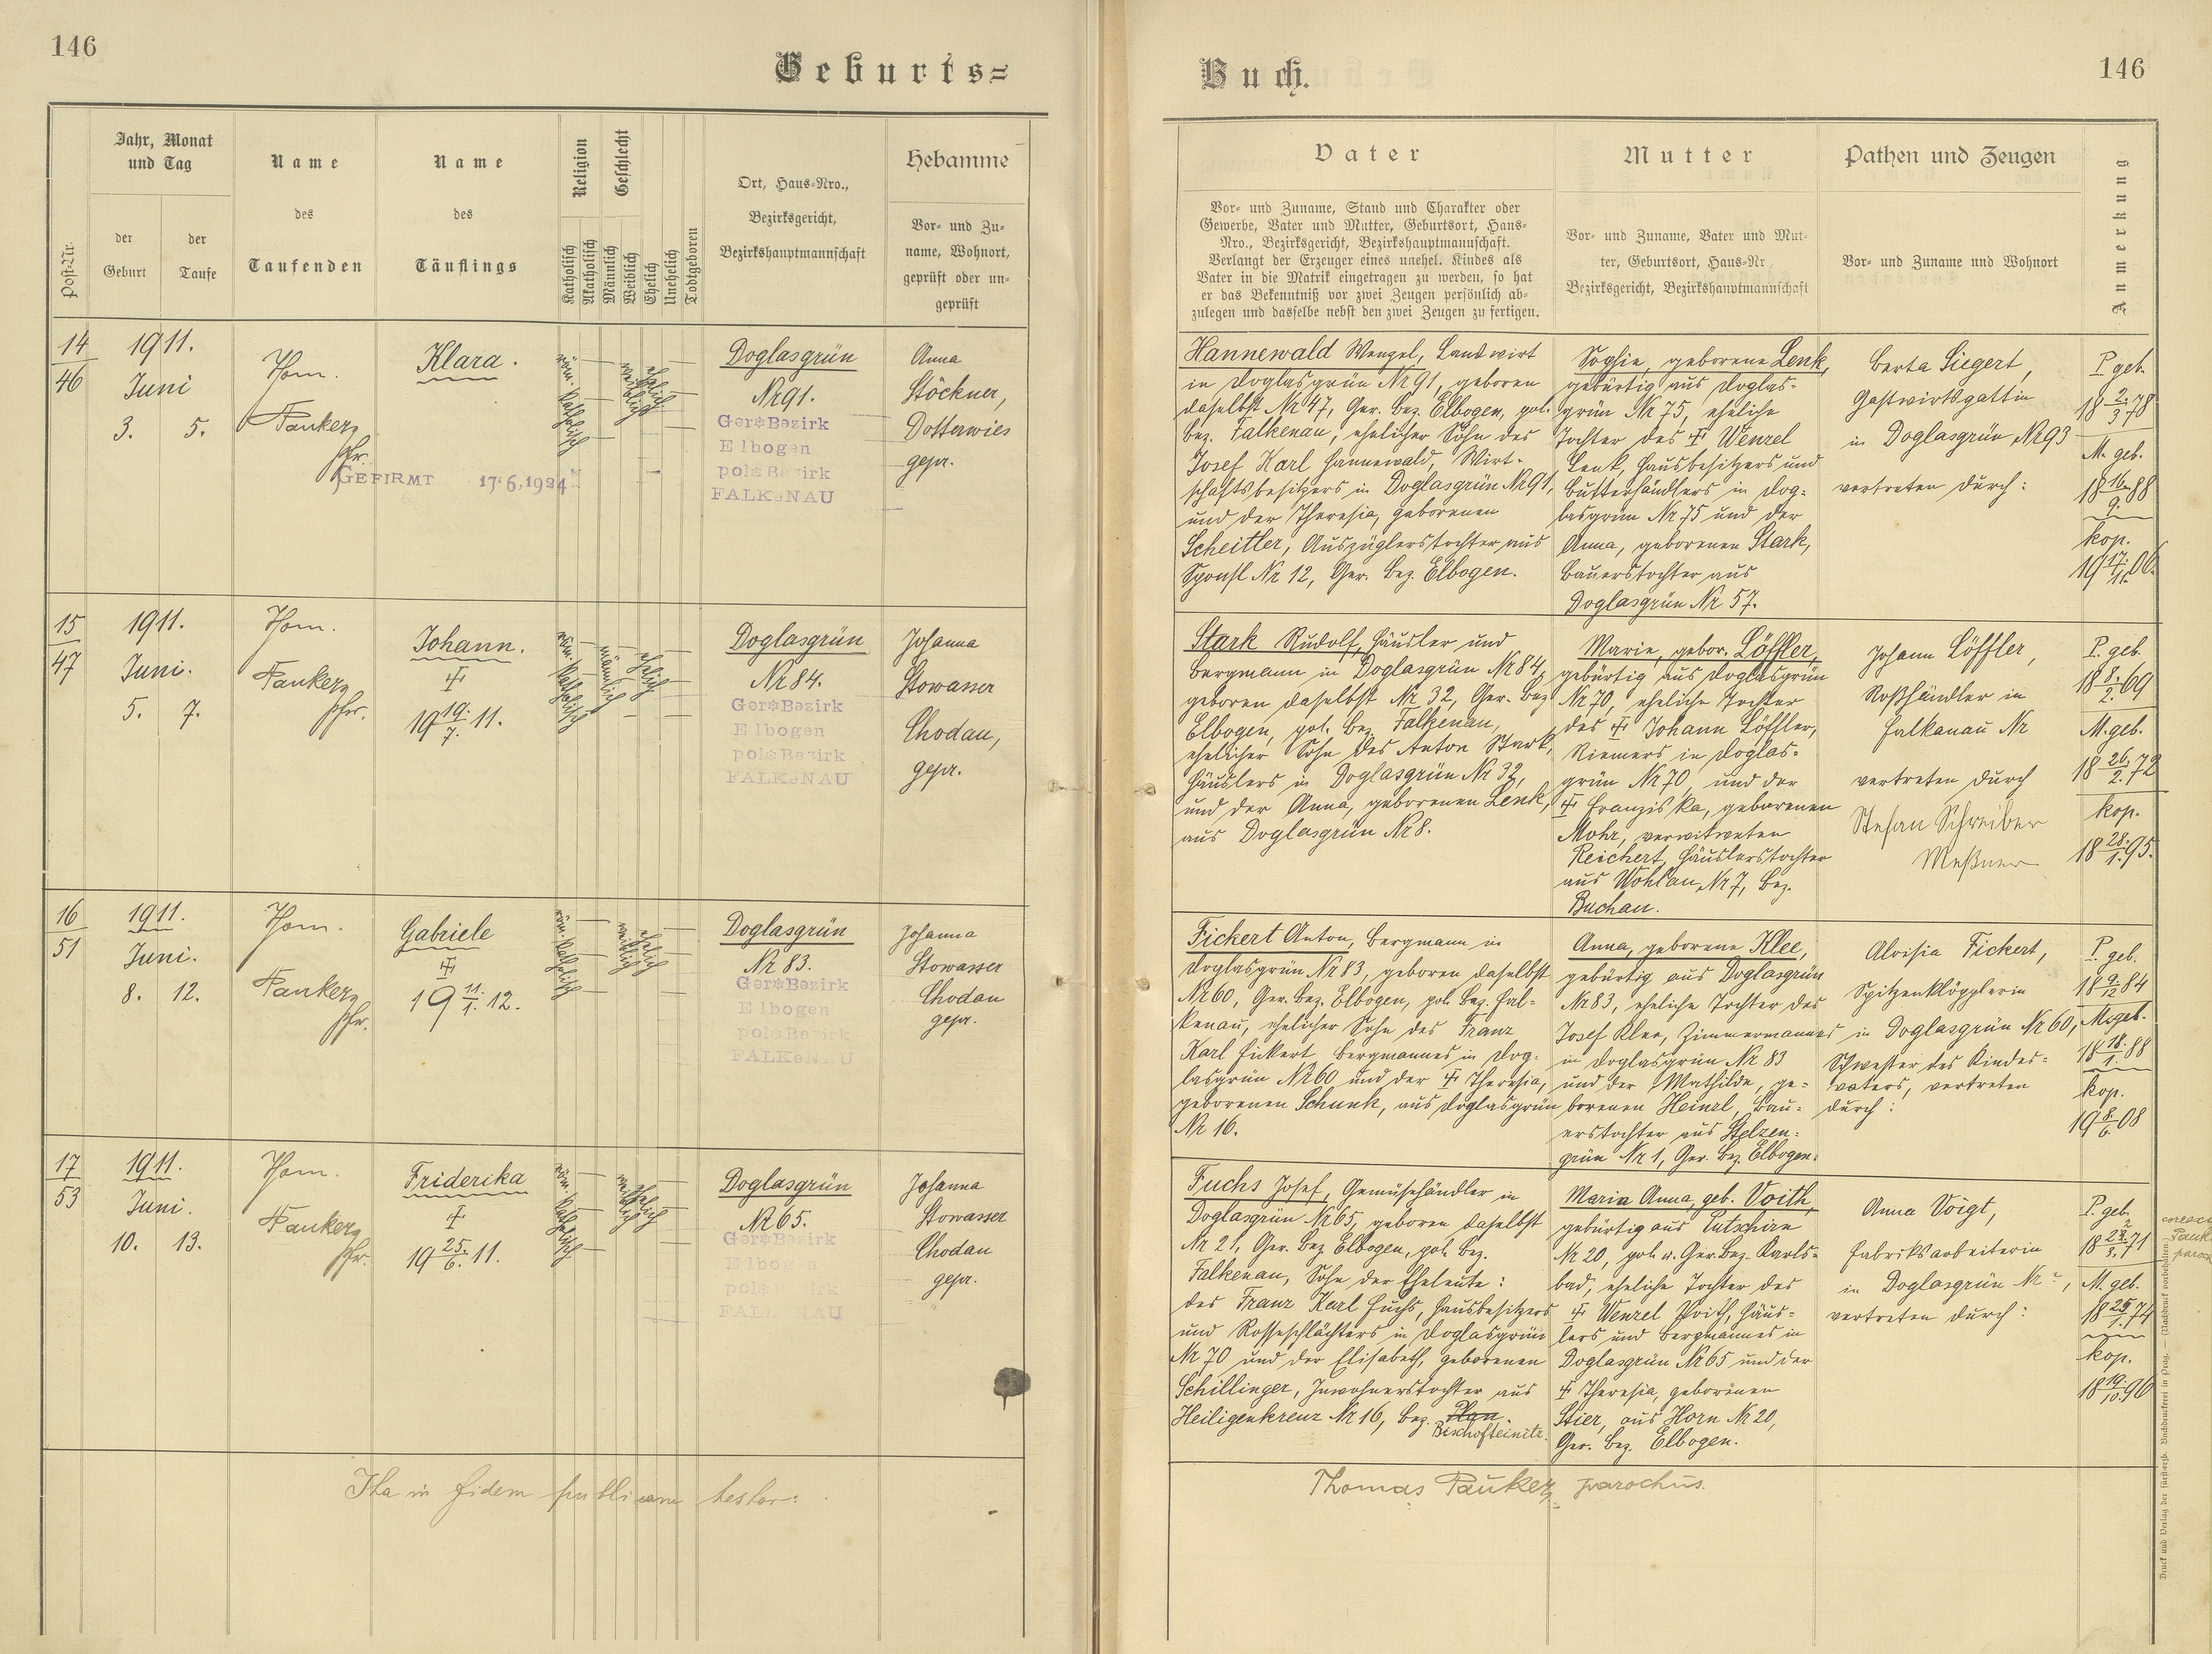 146
Geburts=
Jahr, Monat
und Tag
Post-Nr.
der
Geburt
der
Taufe
Name
des
Taufenden
Name
des
Täuflings
Religion
Katholisch
Akatholisch
Geschlecht
Männlich
Weiblich
Ehelich
Unehelich
Todtgeboren
Ort, Haus-Nro.,
Bezirksgericht,
Bezirkshauptmannschaft
Hebamme
Vor- und Zu-
name, Wohnort,
geprüft oder un-
geprüft
14
46
1911.
Juni
3. 5.
Thom.
Pauker,
Pfr.
GEFIRMT 17.6.1924
Klara.
röm. katholisch
weiblich
ehelich
Doglasgrün
Nr 91.
Ger Bezirk
Elbogen
pol Bezirk
FALKeNAU
Anna
Stöckner,
Dotterwies
gepr.
15
47
1911.
Juni.
5. 7.
Thom.
Pauker,
Pfr.
Johann.
19 19./7. 11.
röm. katholisch
männlich
ehelich
Doglasgrün
Nr 84.
Ger Bezirk
Elbogen
pol Bezirk
FALKeNAU
Johanna
Stowasser
Chodau,
gepr.
16
51
1911.
Juni.
8. 12.
Thom.
Pauker,
Pfr.
Gabriele
19 11./1. 12.
röm. katholisch
weiblich
ehelich
Doglasgrün
Nr 83.
Ger Bezirk
Elbogen
pol Bezirk
FALKeNAU
Johanna
Stowasser
Chodau
gepr.
17
53
1911.
Juni.
10. 13.
Thom.
Pauker,
Pfr.
Friderika
19 25./6. 11.
röm. katholisch
weiblich
ehelich
Doglasgrün
Nr 65.
Ger Bezirk
Elbogen
pol Bezirk
FALKeNAU
Johanna
Stowasser
Chodau
gepr.
Ita in fidem publicam testor:
Buch.
146
Vater
Vor- und Zuname, Stand und Charakter oder
Gewerbe, Vater und Mutter, Geburtsort, Haus-
Nro., Bezirksgericht, Bezirkshauptmannschaft.
Verlangt der Erzeuger eines unehel. Kindes als
Vater in die Matrik eingetragen zu werden, so hat
er das Bekenntniß vor zwei Zeugen persönlich ab-
zulegen und dasselbe nebst den zwei Zeugen zu fertigen.
Mutter
Vor- und Zuname, Vater und Mut-
ter, Geburtsort, Haus-Nr
Bezirksgericht, Bezirkshauptmannschaft
Pathen und Zeugen
Vor- und Zuname und Wohnort
Anmerkung
Hannewald Wenzel, Landwirt
in Doglasgrün Nr 91, geboren
daselbst Nr 47, Ger. Bez. Elbogen, pol.
Bez. Falkenau, ehelicher Sohn des
Josef Karl Hannewald, Wirt-
schaftsbesitzers in Doglasgrün Nr 91,
und der Theresia, geborenen
Scheitler, Auszüglerstochter aus
Sponsl Nr 12, Ger. Bez. Elbogen.
Sophie, geborene Lenk,
gebürtig aus Doglas-
grün Nr 75, eheliche
Tochter des Wenzel
Lenk, Hausbesitzers und
Butterhändlers in Dog-
lasgrün Nr 75 und der
Anna, geborenen Stark,
Bauerstochter aus
Doglasgrün Nr 57.
Berta Siegert,
Gastwirtsgattin
in Doglasgrün Nr 93
vertreten durch:
P. geb.
18 2./3. 78
M. geb.
18 16./9. 88
kop.
19 17./11. 06.
Stark Rudolf, Häusler und
Bergmann in Doglasgrün Nr 84,
geboren daselbst Nr 32, Ger. Bez.
Elbogen, pol. Bez. Falkenau,
ehelicher Sohn des Anton Stark,
Häuslers in Doglasgrün Nr 32,
und der Anna, geborenen Lenk,
aus Doglasgrün Nr 8.
Marie, gebor. Löffler,
gebürtig aus Doglasgrün
Nr 70, eheliche Tochter
des Johann Löffler,
Riemers in Doglas-
grün Nr 70, und der
Franziska, geborenen
Mohr, verwitweten
Reichert, Häuslerstochter
aus Wohlau, Nr 7, Bez.
Buchau.
Johann Löffler,
Roßhändler in
Falkenau Nr
vertreten durch
Stefan Schreiber
Meßner
P. geb.
18 8./2. 69
M. geb.
18 26./2. 72
kop.
18 28./1. 95.
Fickert Anton, Bergmann in
Doglasgrün Nr 83, geboren daselbst
Nr 60, Ger. Bez. Elbogen, pol. Bez. Fal-
kenau, ehelicher Sohn des Franz
Karl Fickert, Bergmannes in Dog-
lasgrün Nr 60 und der Theresia,
geborenen Schunk, aus Doglasgrün
Nr 16.
Anna, geborene Klee,
gebürtig aus Doglasgrün
Nr 83, eheliche Tochter des
Josef Klee, Zimmermannes
in Doglasgrün Nr 83
und der Mathilde, ge-
borenen Heinzl, Bau-
erstochter aus Stelzen-
grün Nr 1, Ger. Bez. Elbogen.
Aloisia Fickert,
Spitzenklöpplerin
in Doglasgrün Nr 60,
Schwester des Kindes-
vaters, vertreten
durch:
P. geb.
18 9./12. 84
M. geb.
18 18./1. 88
kop.
19 8./6. 08
Fuchs Josef, Gemüsehändler in
Doglasgrün Nr 65, geboren daselbst
Nr 21, Ger. Bez Elbogen, pol. Bez.
Falkenau, Sohn der Eheleute:
des Franz Karl Fuchs, Hausbesitzers
und Rosseschlächters in Doglasgrün
Nr 70 und der Elisabeth, geborenen
Schillinger, Inwohnerstochter aus
Heiligenkreuz Nr 16, Bez. Plan.
Bischofteinitz.
Maria Anna, geb. Voith,
gebürtig aus Putschirn
Nr 20, pol. u. Ger. Bez. Karls-
bad, eheliche Tochter des
Wenzel Voith, Häus-
lers und Bergmannes in
Doglasgrün Nr 65 und der
Theresia, geborenen
Stier, aus Horn Nr 20,
Ger. Bez. Elbogen.
Anna Voigt,
Fabriksarbeiterin
in Doglasgrün Nr ,
vertreten durch:
P. geb.
M. geb.
kop.
18 19./10. 96
Thomas Pauker, parochus.
Druck und Verlag der fürsterzb. Buchdruckerei in Prag. — (Nachdruck vorbehalten.)